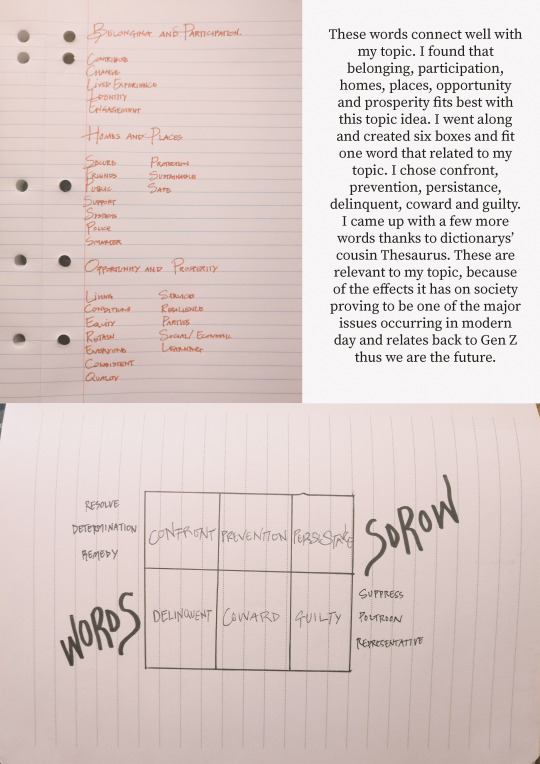 Belonging and Participation.
Contribute
Change
Lived Experience
Identity
Engagement
Homes and Places
Secure
Friends
Public
Support
Systems
Police
Smarter
Protection
Sustainable
Safe
Opportunity and Prosperity
Living
Conditions
Equity
Retain
Everyone
Consistent
Quality
Services
Resilience
Parties
Social/Economic
Learning
These words connect well with
my topic. I found that
belonging, participation,
homes, places, opportunity
and prosperity fits best with
this topic idea. I went along
and created six boxes and fit
one word that related to my
topic. I chose confront,
prevention, persistance,
delinquent, coward and guilty.
I came up with a few more
words thanks to dictionarys'
cousin Thesaurus. These are
relevant to my topic, because
of the effects it has on society
proving to be one of the major
issues occurring in modern
day and relates back to Gen Z
thus we are the future.
RESOLVE
DETERMINATION
REMEDY
WORDS
CONFRONT PREVENTION
DELINQUENT COWARD GUILTY
SOROW
SUPPRESS
POLTROON
REPRESENTATIVE